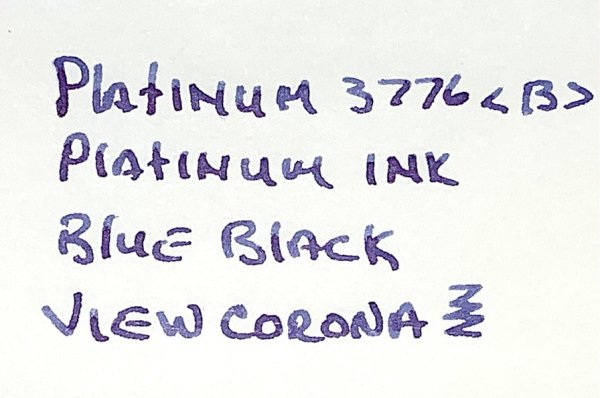 PLATINUM 3776 <B>
PLATINUM INK
BLUE BLACK
VIEW CORONA